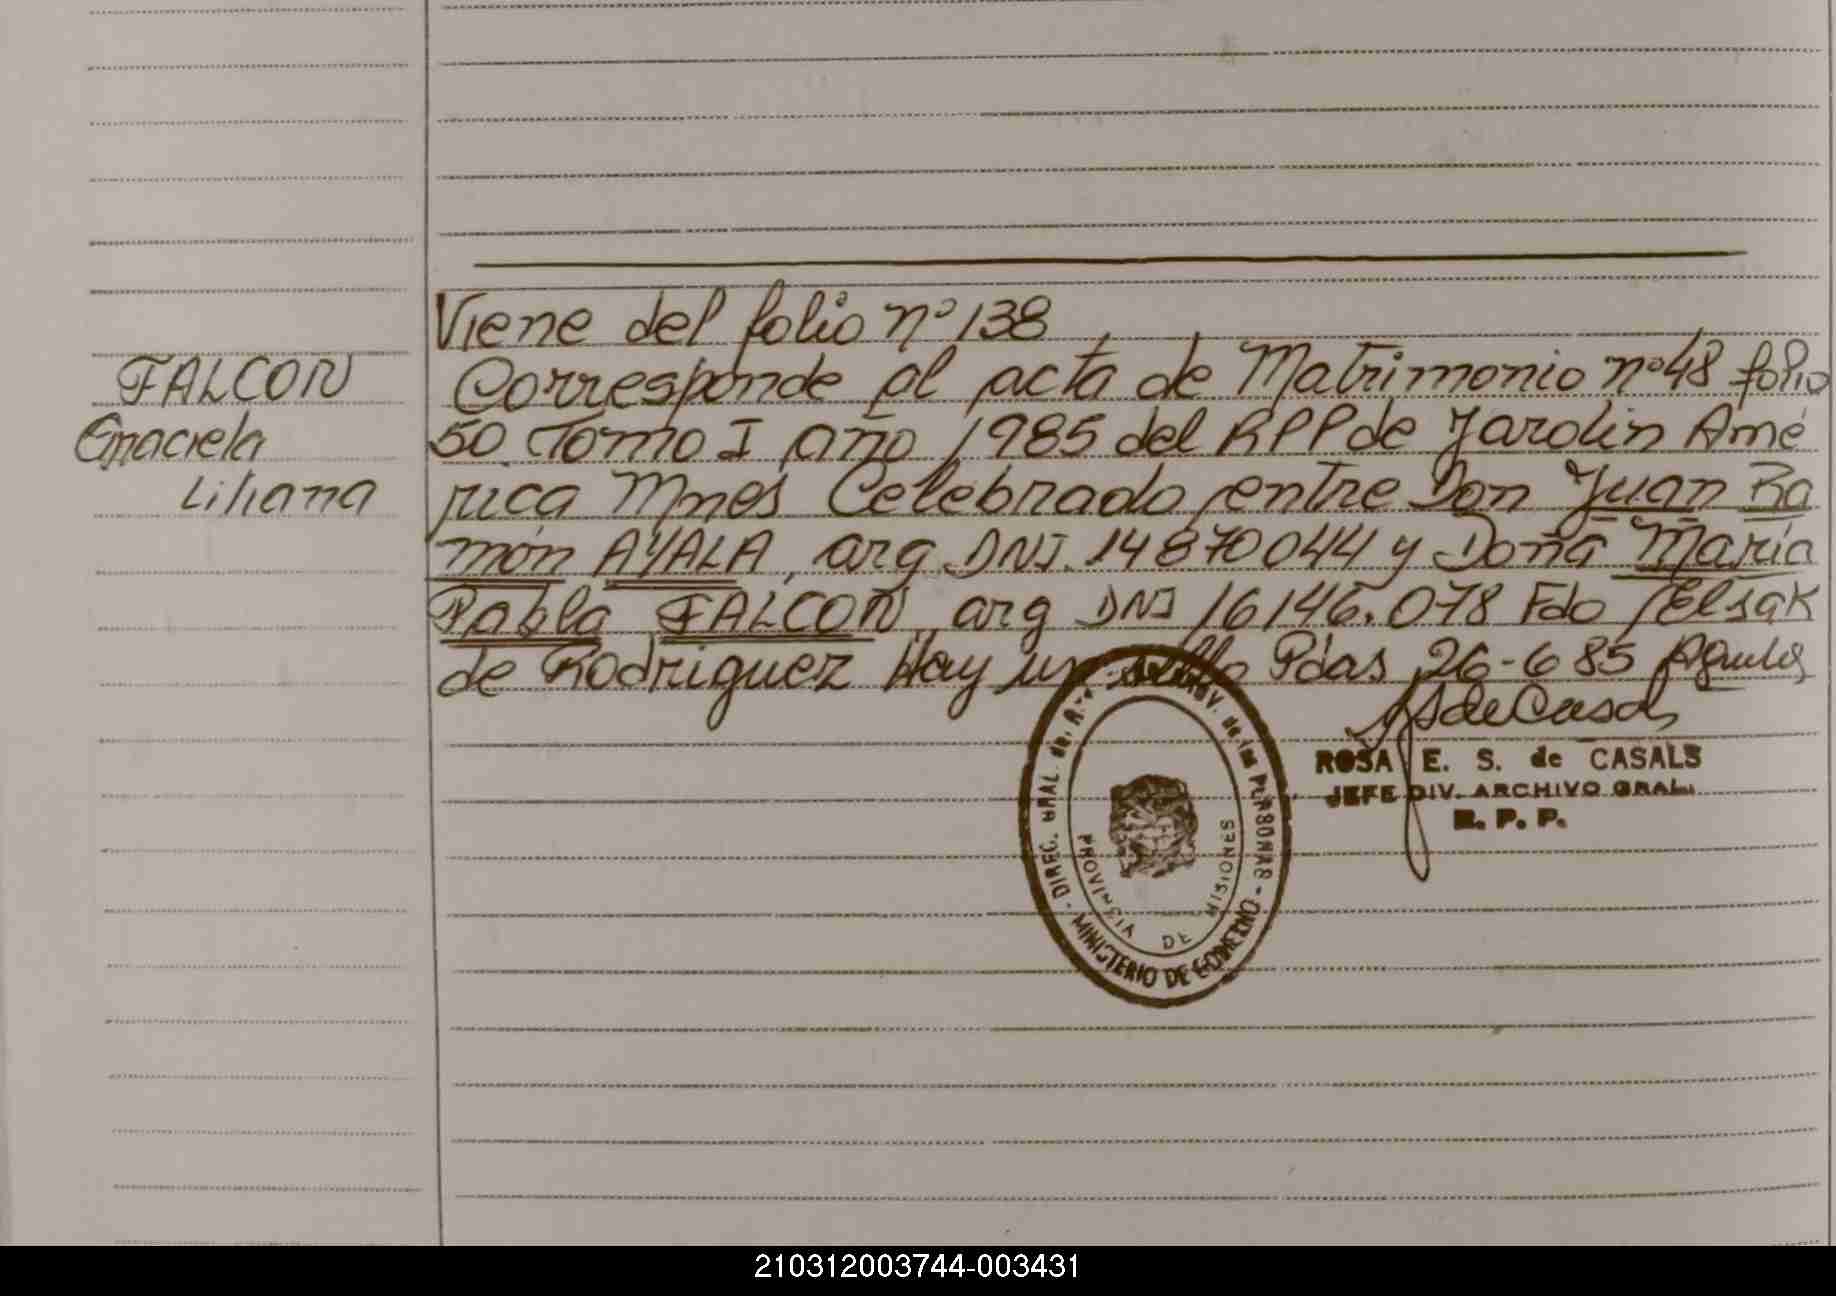 Viene del folio nº 138
FALCON
Graciela
Liliana
Corresponde al acta de Matrimonio nº 48 folio
50 Tomo I año 1985 del RPP de Jardin Amé
rica Mnes Celebrado entre Don Juan Ra
món AYALA, arg DNI. 14870044 y Doña María
Pabla FALCON, arg DNI 16146.078 Fdo Elsa K
de Rodriguez Hay un sello Pdas 26-6 85
ROSA E. S. de CASALS
JEFE DIV. ARCHIVO GRAL.
R. P. P.
DIREC. GRAL. de las PERSONAS
MINISTERIO DE GOBIERNO
PROVINCIA DE MISIONES
210312003744-003431